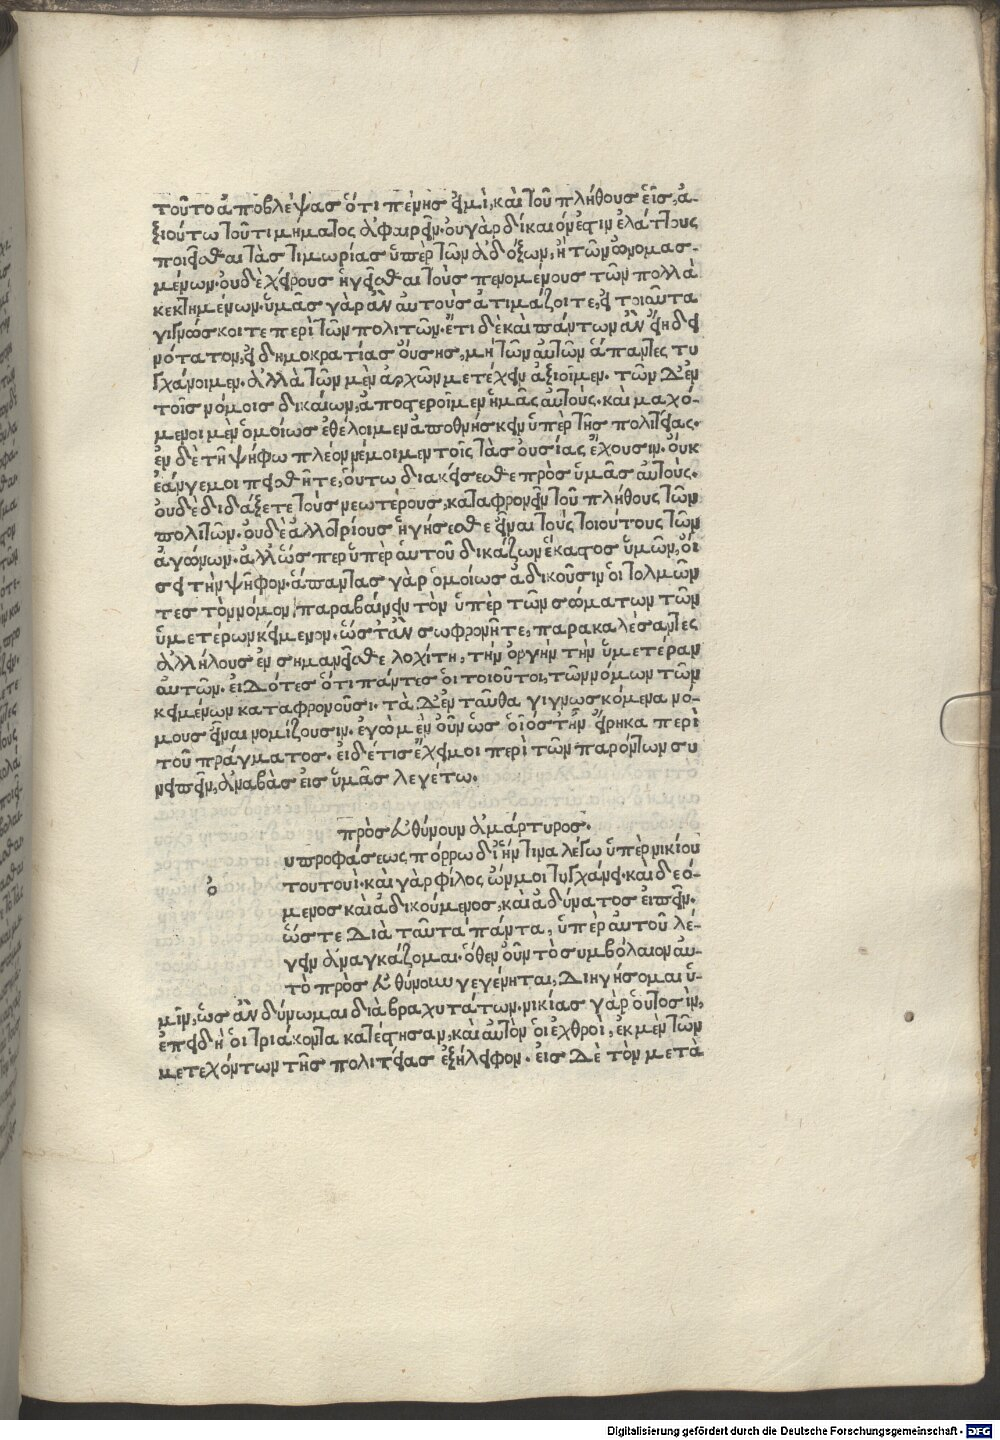 τοῦτο ἀποβλέψας ὅτι πένης εἰμὶ, καὶ τοῦ πλήθους εἷς, ἀ-
ξιούτω τοῦ τιμήματος ἀφαιρεῖν. οὐ γὰρ δίκαιόν ἐστιν ἐλάττους
ποιεῖσθαι τὰς τιμωρίας ὑπὲρ τῶν ἀδόξων, ἢ τῶν ὠνομασ-
μένων. οὐδὲ χείρους ἡγεῖσθαι τοὺς πενομένους τῶν πολλὰ
κεκτημένων. ὑμᾶς γὰρ ἂν αὐτοὺς ἀτιμάζοιτε, εἰ τοιαῦτα
γιγνώσκοιτε περὶ τῶν πολιτῶν. ἔτι δὲ καὶ πάντων ἂν εἴη δει
νότατον, εἰ δημοκρατίας οὔσης, μὴ τῶν αὐτῶν ἅπαντες τυ
γχάνοιμεν. ἀλλὰ τῶν μὲν ἀρχῶν μετέχειν ἀξιοῖμεν. τῶν δ' ἐν
τοῖς νόμοις δικαίων, ἀποστεροῖμεν ἡμᾶς αὐτούς. καὶ μαχό-
μενοι μὲν ὁμοίως ἐθέλοιμεν ἀποθνήσκειν ὑπὲρ τῆς πολιτείας.
ἐν δὲ τῇ ψήφω πλέον νέμοιμεν τοῖς τὰς οὐσίας ἔχουσιν. οὐκ
ἐάν γε μοι πεισθῆτε, οὕτω διακείσεσθε πρὸς ὑμᾶς αὐτούς.
οὐδὲ διδάξετε τοὺς νεωτέρους, καταφρονεῖν τοῦ πλήθους τῶν
πολιτῶν. οὐδὲ ἀλλοτρίους ἡγήσεσθε εἶναι τοὺς τοιούτους τῶν
ἀγώνων. ἀλλ' ὥσπερ ὑπὲρ αὑτοῦ δικάζων ἕκαστος ὑμῶν, οἴ
σει τὴν ψῆφον. ἅπαντας γὰρ ὁμοίως ἀδικοῦσιν οἱ τολμῶν
τες τὸν νόμον παραβαίνειν τὸν ὑπὲρ τῶν σωμάτων τῶν
ὑμετέρων κείμενον. ὥστ' ἂν σωφρονῆτε, παρακαλέσαντες
ἀλλήλους ἐνσημανεῖσθε λοχίτη, τὴν ὀργὴν τὴν ὑμετέραν
αὐτῶν. εἰδότες ὅτι πάντες οἱ τοιοῦτοι, τῶν νόμων τῶν
κειμένων καταφρονοῦσι. τὰ δ' ἐνταῦθα γιγνωσκόμενα νό-
μους εἶναι νομίζουσιν. ἐγὼ μὲν οὖν ὡς οἷός τ' ἦν εἴρηκα περὶ
τοῦ πράγματος. εἰ δέ τις ἔχει μοι περὶ τῶν παρόντων συ
νειπεῖν, ἀναβὰς εἰς ὑμᾶς λεγέτω.
πρὸς εὐθύνουν ἀμάρτυρος.
υ προφάσεως πόρρω δι' ἥν τινα λέγω ὑπὲρ νικίου
τουτουί. καὶ γὰρ φίλος ὤν μοι τυγχάνει. καὶ δεό-
ο
μενος καὶ ἀδικούμενος, καὶ ἀδύνατος εἰπεῖν.
ὥστε διὰ ταῦτα πάντα, ὑπὲρ αὐτοῦ λέ-
γειν ἀναγκάζομαι. ὅθεν οὖν τὸ συμβόλαιον αὐ-
τὸ πρὸς εὐθύνουν γεγένηται, διηγήσομαι ὑ-
μῖν, ὡς ἂν δύνωμαι διὰ βραχυτάτων. νικίας γὰρ οὑτοσὶν,
ἐπειδὴ οἱ τριάκοντα κατέστησαν, καὶ αὐτὸν οἱ ἐχθροὶ, ἐκ μὲν τῶν
μετεχόντων τῆς πολιτείας ἐξήλειφον. εἰς δὲ τὸν μετὰ
Digitalisierung gefördert durch die Deutsche Forschungsgemeinschaft - DFG